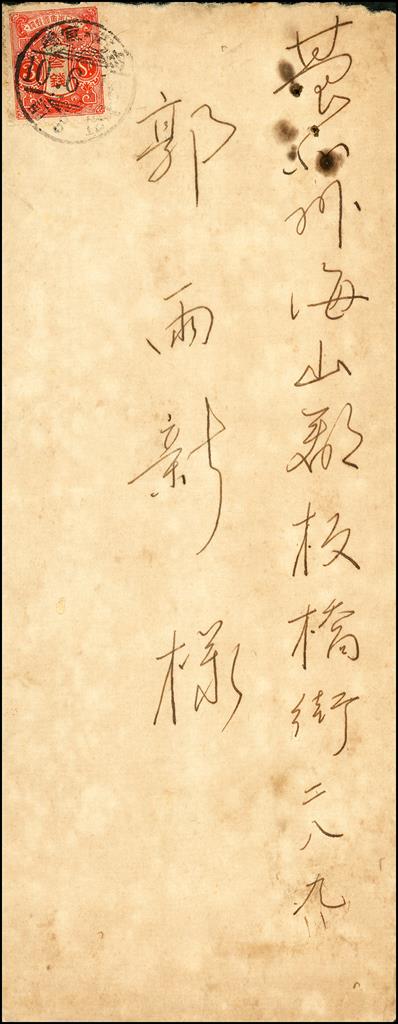 臺北州海山郡板橋街二八九
郭雨新様